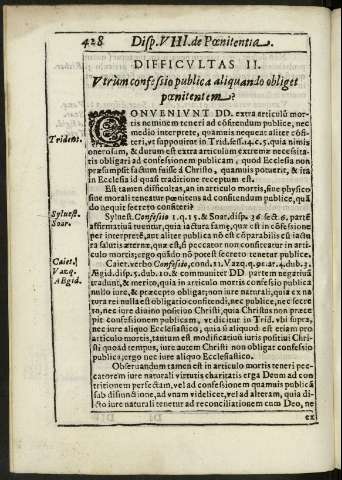 428 Disp. VIII. de Pœnitentia.
DIFFICVLTAS II.
Vtrùm confessio publica aliquando obliget
pœnitentem?
CONVENIVNT DD. extra articulũ mor-
tis neminem teneri ad cõfitendum publice, nec
medio interprete, quamuis nequeat aliter cõfi-
Trident.
teri, vt supponitur in Trid. sess. 14. c. 5. quia nimis
onerosum, & durum est extra articulum extremæ necessita-
tis obligari ad confessionem publicam, quod Ecclesia non
præsumpsit factum fuisse à Christo, quamuis potuerit, & ita
in Ecclesia id quasi traditione receptum est.
Est tamen difficultas, an in articulo mortis, siue physico
siue morali teneatur pœnitens ad confitendum publice, quã
do nequit secreto confiteri?
Syluest.
Soar.
Syluest. Confessio 1. q. 15. & Soar. disp. 36. sect. 6. parte
affirmatiua tuentur, quia iactura famæ, quæ est in cõfessione
per interpretẽ, aut aliter publica nõ est cõparabilis cũ iactu
ra salutis æternæ, quæ est, si peccator non confiteatur in arti-
culo mortis; ergo quãdo nõ potest secreto tenetur publice.
Caiet.
Vazq.
AEgid.
Caiet. verbo Confessio, cond. 11. Vazq. q. 91. ar. 4. dub. 3.
Ægid. disp. 5. dub. 10. & communiter DD partem negatiuã
tradunt, & merito, quia in articulo mortis confessio publica
nullo iure, & præcepto obligat; non iure naturali, quia ex na
tura rei nulla est obligatio confitendi, nec publice, nec secre
to, nec iure diuino positiuo Christi, quia Christus non præce
pit confessionem publicam, vt dicitur in Trid. vbi supra,
nec iure aliquo Ecclesiastico, quia si aliquod est etiam pro
articulo mortis, tantum est modificatiuũ iuris positiui Chri-
sti quoad tempus, iure autem Christi non obligat confessio
publica; ergo nec iure aliquo Ecclesiastico.
Obseruandum tamen est in articulo mortis teneri pec-
catorem iure naturali virtutis charitatis erga Deum ad con
tritionem perfectam, vel ad confessionem quamuis publicã
sub disiunctione, ad vnam videlicet, vel ad alteram, quia di-
cto iure naturali tenetur ad reconciliationem cum Deo, ne
ex